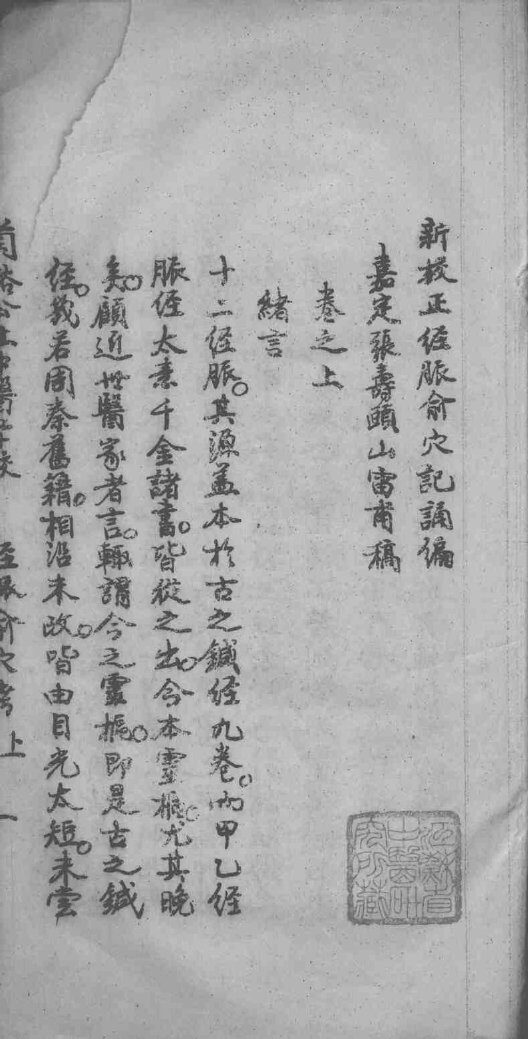 新校正經脈俞穴記誦編
嘉定張壽頤山雷甫稿
卷之上
緒言
十二経脈。其源盖本於古之鍼経九卷。而甲乙経
脈経太素千金諸書。皆從之出。今本靈樞。尤其晚
矣。顧近世醫家者言。輒謂今之靈樞。即是古之鍼
経。幾若周秦舊籍。相沿未改。皆由目光太短。未嘗
上 一